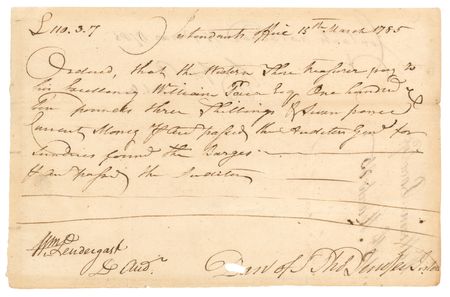 £ 110.3.7 Intendants office 15th March 1785
Ordered, that the Western Shore Treasurer pay to
his Excellency William Paca Esq. One hundred &
Ten pounds three Shillings & Seven pence
Current Money passed the Auditor Genl. for
Sundries found the Barges
passed the Auditor
Wm. Pendergast
D Audr.
Dan of St Thos Jenifer